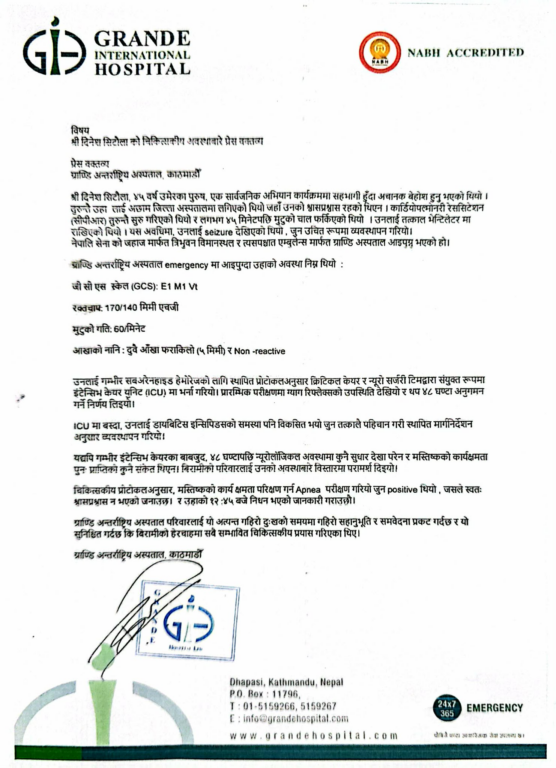 GRANDE
INTERNATIONAL
HOSPITAL
NABH
NABH ACCREDITED
विषय
श्री दिनेश सिटौला को चिकित्सकीय अवस्थाबारे प्रेस वक्तव्य
प्रेस वक्तव्य
ग्राण्डि अन्तर्राष्ट्रिय अस्पताल, काठमाडौँ
श्री दिनेश सिटौला, ४५ वर्ष उमेरका पुरुष, एक सार्वजनिक अभियान कार्यक्रममा सहभागी हुँदा अचानक बेहोश हुनु भएको थियो ।
तुरुन्तै उहा लाई अछाम जिल्ला अस्पतालमा लगिएको थियो जहाँ उनको श्वासप्रश्वास रहको थिएन । कार्डियोपल्मोनरी रेससिटेशन
(सीपीआर) तुरुन्तै सुरु गरिएको थियो र लगभग ४५ मिनेटपछि मुटुको चाल फर्किएको थियो । उनलाई तत्काल भेन्टिलेटर मा
राखिएको थियो । यस अवधिमा, उनलाई seizure देखिएको थियो , जुन उचित रूपमा व्यवस्थापन गरियो।
नेपालि सेना को जहाज मार्फत त्रिभुवन विमानस्थल र त्यसपश्चात एम्बुलेन्स मार्फत ग्राण्डि अस्पताल आइपुग्नु भएको हो।
ग्राण्डि अन्तर्राष्ट्रिय अस्पताल emergency मा आइपुग्दा उहाको अवस्था निम्न थियो :
जी सी एस स्केल (GCS): E1 M1 Vt
रक्तचाप: 170/140 मिमी एचजी
मुटुको गति: 60/मिनेट
आखाको नानि : दुवै आँखा फराकिलो (५ मिमी) र Non -reactive
उनलाई गम्भीर सबअरेनहाइड हेमोरेजको लागि स्थापित प्रोटोकलअनुसार क्रिटिकल केयर र न्यूरो सर्जरी टिमद्वारा संयुक्त रूपमा
इंटेन्सिभ केयर युनिट (ICU) मा भर्ना गरियो। प्रारम्भिक परीक्षणमा ग्याग रिफ्लेक्सको उपस्थिति देखियो र थप ४८ घण्टा अनुगमन
गर्ने निर्णय लिइयो।
ICU मा बस्दा, उनलाई डायबिटिस इन्सिपिडसको समस्या पनि विकसित भयो जुन तत्कालै पहिचान गरी स्थापित मार्गनिर्देशन
अनुसार व्यवस्थापन गरियो।
यद्यपि गम्भीर इंटेन्सिभ केयरका बाबजुद, ४८ घण्टापछि न्यूरोलॉजिकल अवस्थामा कुनै सुधार देखा परेन र मस्तिष्कको कार्यक्षमता
पुनः प्राप्तिको कुनै संकेत थिएन। बिरामीको परिवारलाई उनको अवस्थाबारे विस्तारमा परामर्श दिइयो।
चिकित्सकीय प्रोटोकलअनुसार, मस्तिष्कको कार्य क्षमता परिक्षण गर्न Apnea परीक्षण गरियो जुन positive थियो , जसले स्वतः
श्वासप्रश्वास न भएको जनाउछ। र उहाको १२ :४५ बजे निधन भएको जानकारी गराउछौ।
ग्राण्डि अन्तर्राष्ट्रिय अस्पताल परिवारलाई यो अत्यन्त गहिरो दुःखको समयमा गहिरो सहानुभूति र समवेदना प्रकट गर्दछ र यो
सुनिश्चित गर्दछ कि बिरामीको हेरचाहमा सबै सम्भावित चिकित्सकीय प्रयास गरिएका थिए।
ग्राण्डि अन्तर्राष्ट्रिय अस्पताल, काठमाडौँ
GRANDE
Hospital
Dhapasi, Kathmandu, Nepal
P.O. Box : 11796,
T : 01-5159266, 5159267
E : info@grandehospital.com
www.grandehospital.com
24x7
365
EMERGENCY